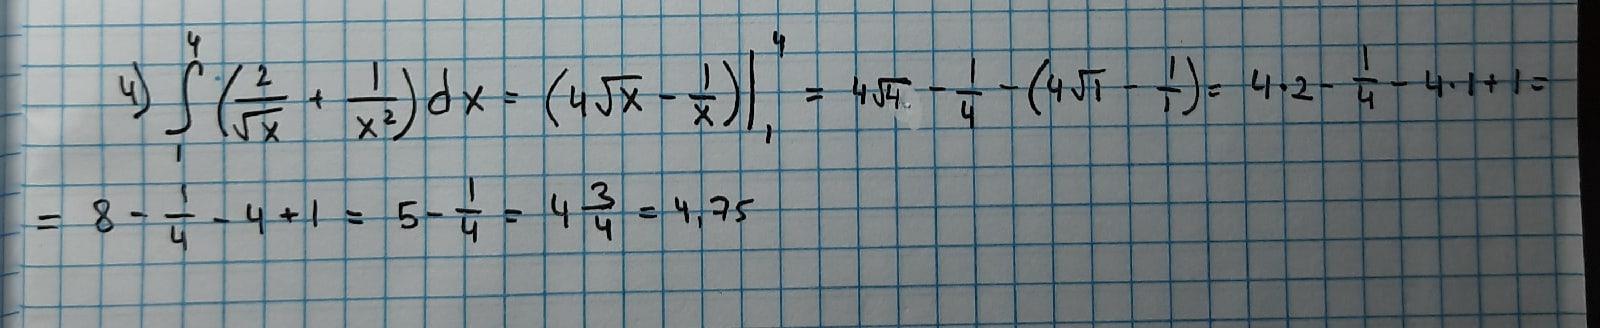 4) ∫₁⁴ (2/√x + 1/x²) dx = (4√x - 1/x)|₁⁴ = 4√4 - 1/4 - (4√1 - 1/1) = 4·2 - 1/4 - 4·1 + 1 =
= 8 - 1/4 - 4 + 1 = 5 - 1/4 = 4 3/4 = 4,75